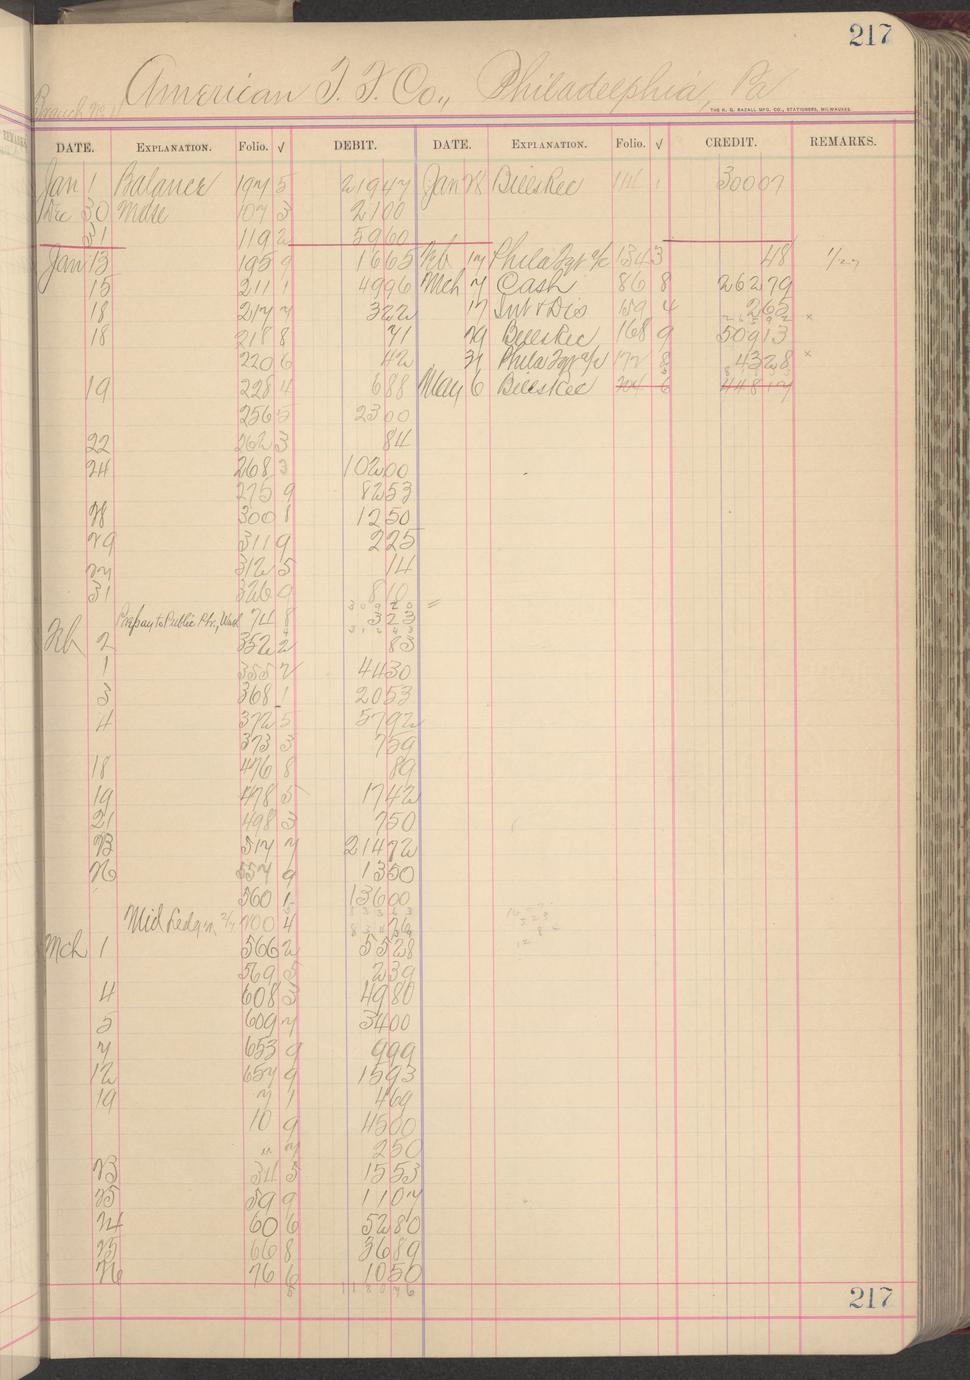 217
American T. F. Co., Philadelphia, Pa
Branch no. 1
THE H. G. RAZALL MFG. CO., STATIONERS, MILWAUKEE.
DATE. EXPLANATION. Folio. √ DEBIT. DATE. EXPLANATION. Folio. √ CREDIT. REMARKS.
Jan 1 Balance 197 5 21947 Jan 28 Bills Rec 114 1 30007
Dec 30 Mdse 107 3 2100
31 119 2 5960
Jan 13 195 9 1665 Feb 17 Phila Fgt a/c 134 3 48
15 211 1 4996 Mch 7 Cash 86 8 26279
18 217 7 322 17 Int & Dis 159 4 265
26592 x
18 218 8 71 29 Bills Rec 168 9 50913
220 6 42 31 Phila Fgt a/c 172 8 4328 x
19 228 4 688 May 6 Bills Rec 6 44817
256 5 2300
22 262 3 84
24 268 3 10200
275 9 8253
28 300 8 1250
29 311 9 225
27 312 5 14
31 326 9 810
30920 =
Prepay to Public Ptr., Wash 74 8 323
31243
Feb 2 352 2 83
1 355 2 4430
3 368 1 2053
4 372 5 5792
373 3 759
18 476 8 89
19 478 5 1742
21 498 3 750
23 517 7 21472
26 557 9 1350
560 1 13600
83363
Mid Ledger, 2/7 700 4 26
Mch 1 566 2 5528
569 5 239
4 608 5 4980
5 609 7 3400
7 653 9 999
12 657 9 1593
19 7 1 469
10 9 4500
" 7 250
23 34 5 1553
25 59 9 1107
24 60 6 5280
25 66 8 3689
26 76 6 1050
118076
217